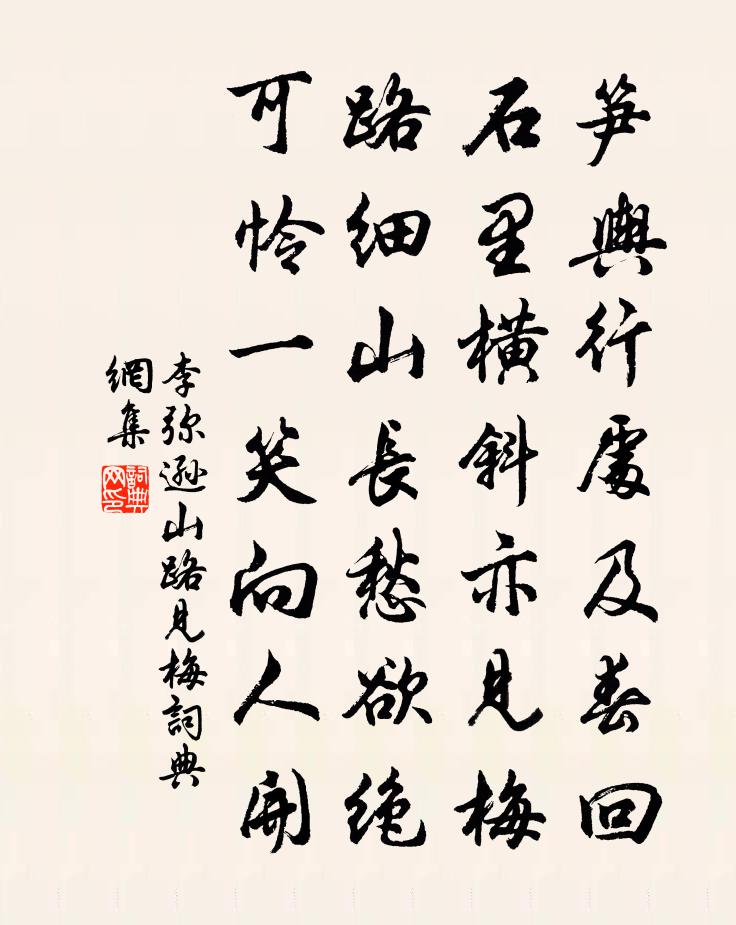 笋輿行處及春回
石里橫斜亦見梅
路細山長愁欲绝
可怜一笑向人開
李弥遜山路見梅詞典
網集
詞典网印